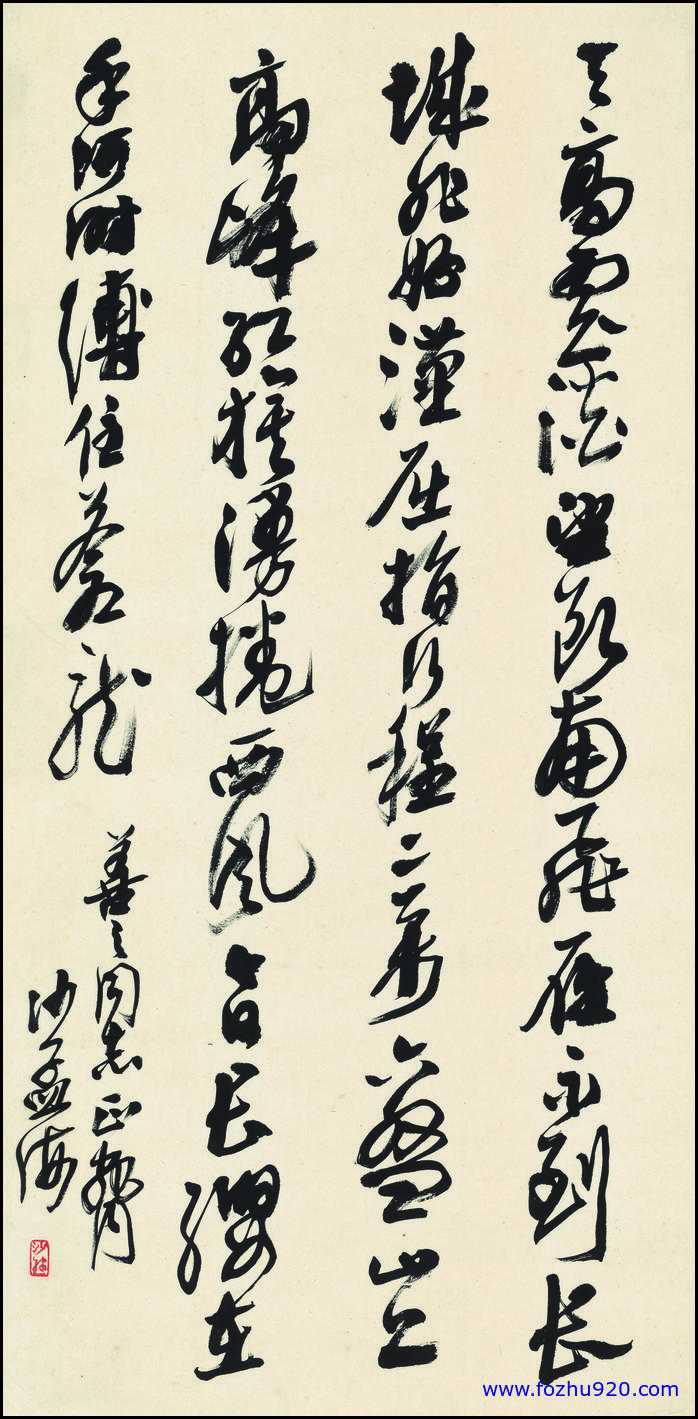 天高雲淡望断南飛雁不到長
城非好漢屈指行程二萬六盤山上
高峰紅旗漫捲西风今日長纓在
手何时縛住蒼龍
善之同志正腕
沙孟海
www.fozhu920.com